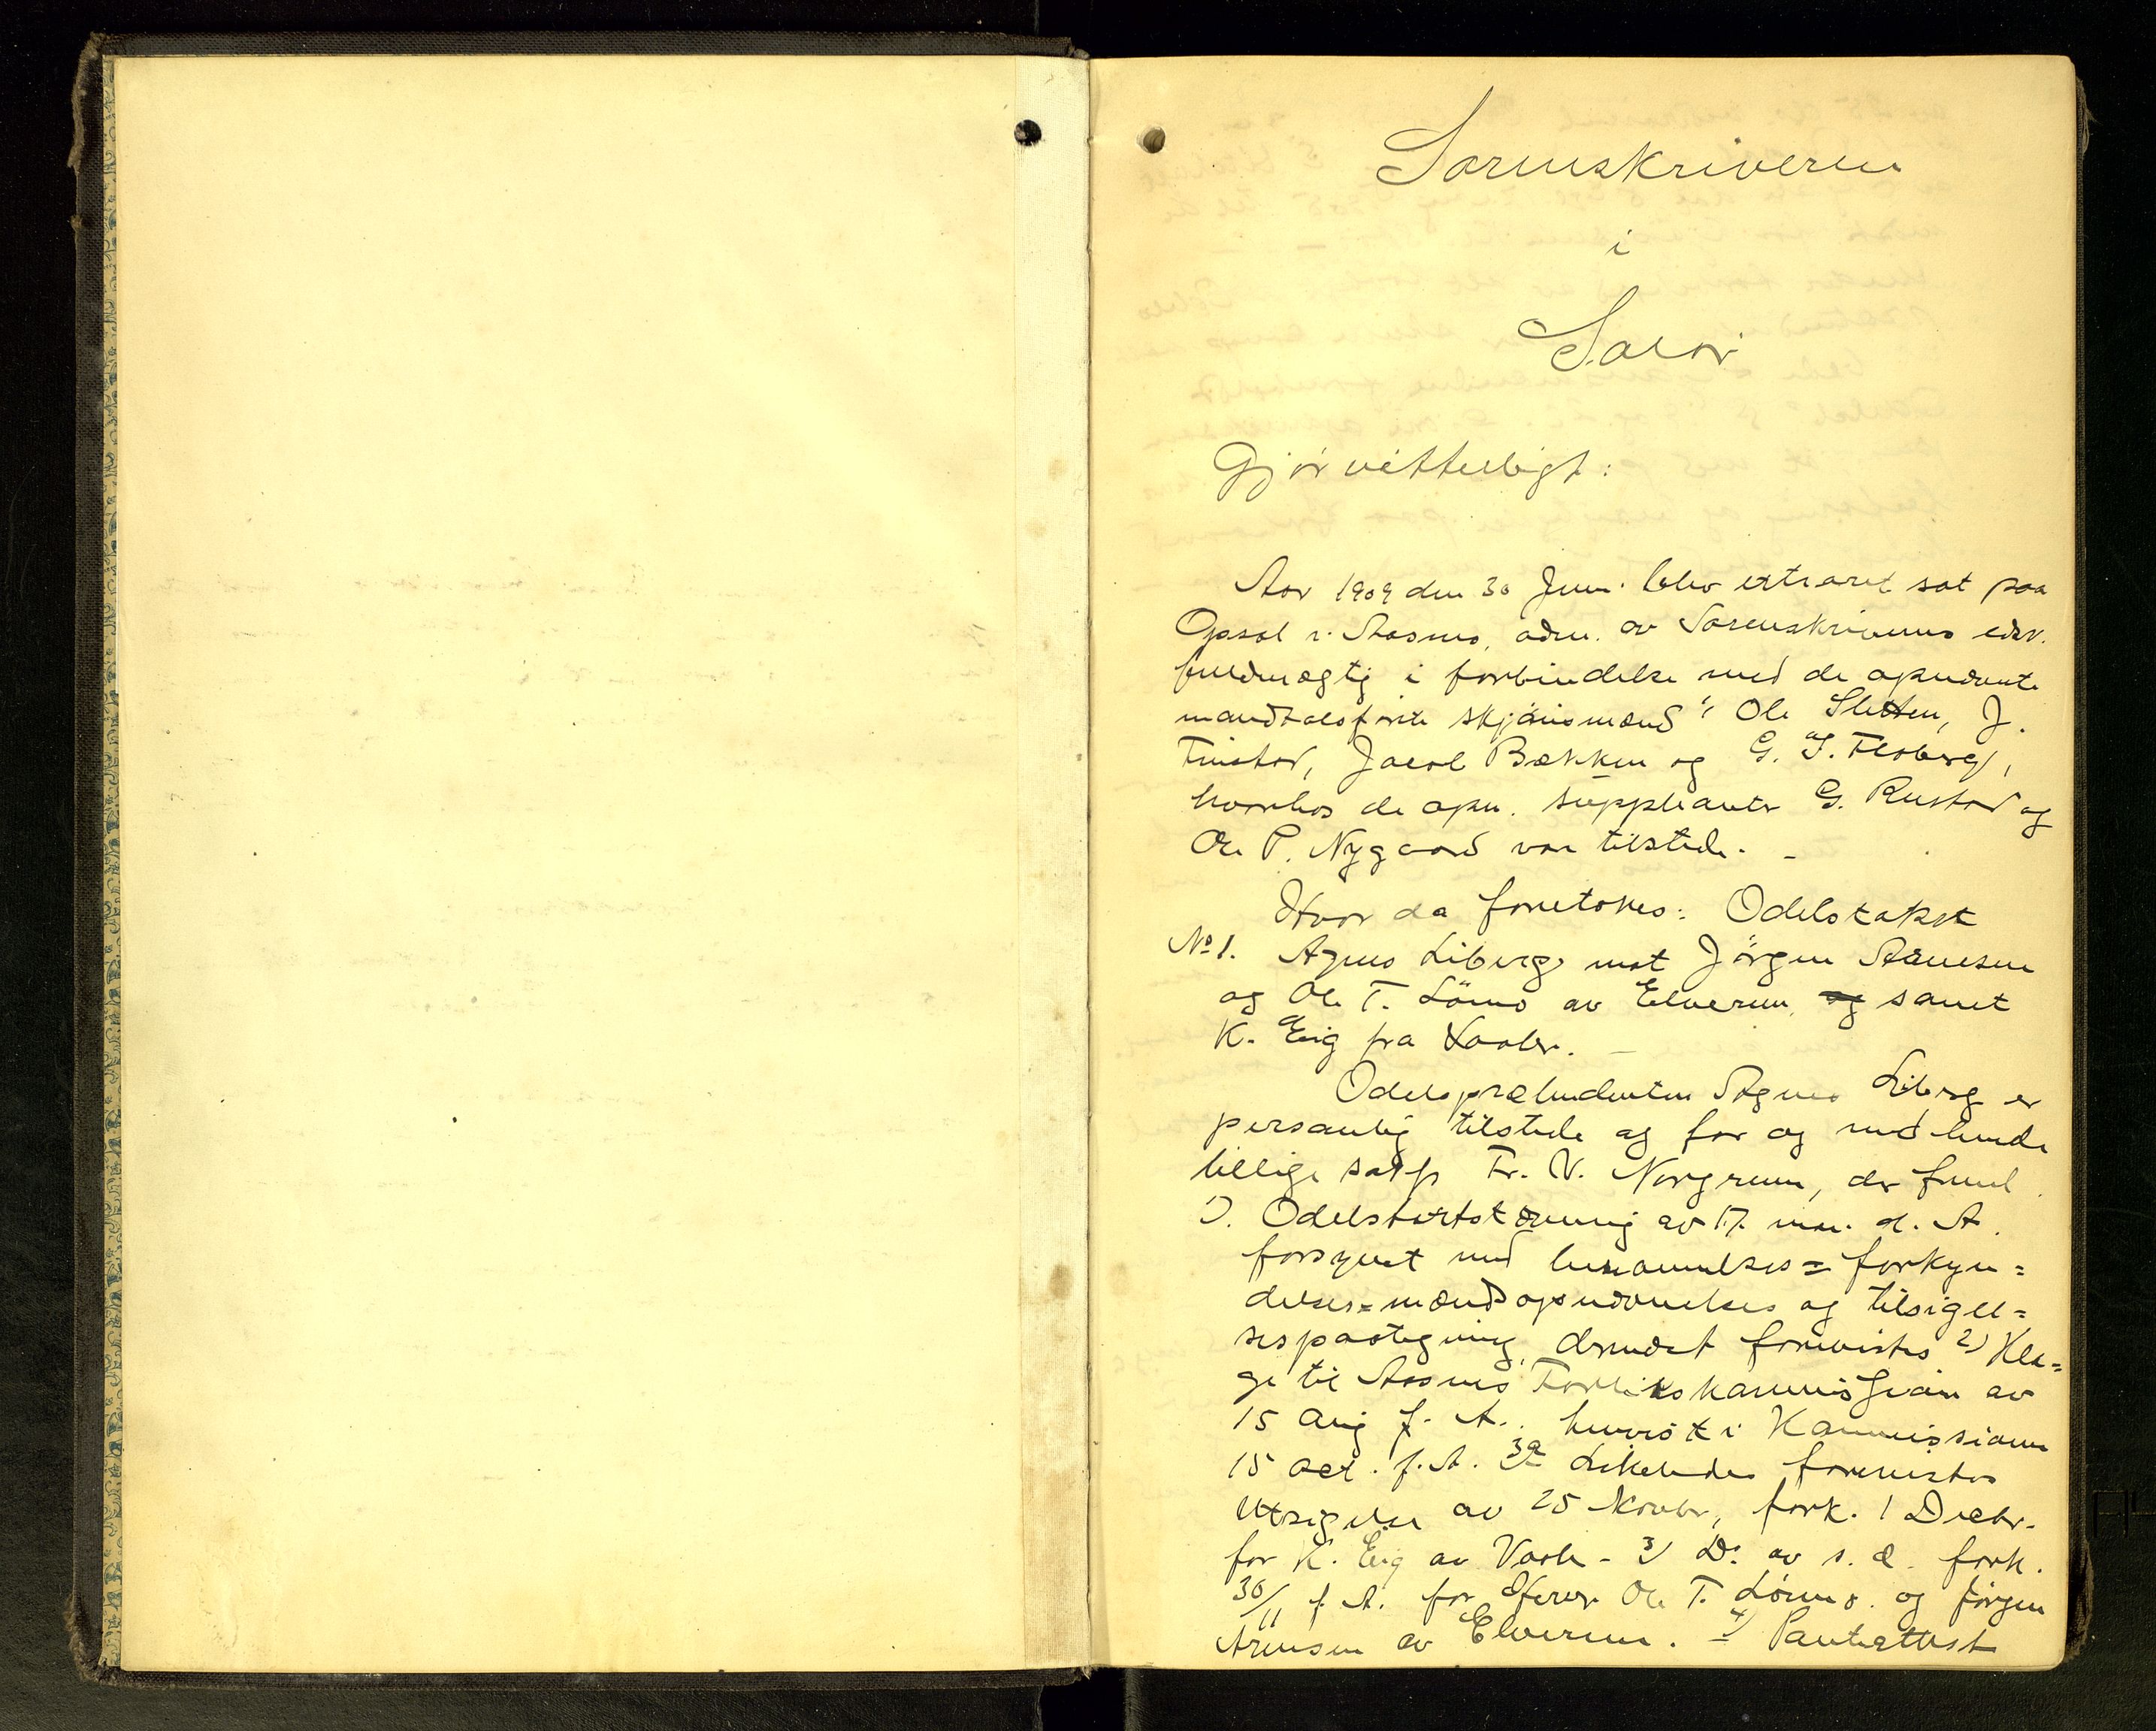 Sorenskriveren
i
Solør
Gjør vitterligt:
Aar 1909 den 30 Juni blev extraret sat paa
Opsal i Aasnes, adm. av Sorenskriverens edsv.
fuldmægtig i forbindelse med de opnævnte
mandtalsførte skjønsmænd: Ole Sletten, J.
Finstad, Jacob Bækken og G. S. Floberg,
hvorhos de opn. suppleanter G. Rustad og
Ole P. Nygaard var tilstede. -
Hvor da foretokes: Odelstakst
No 1. Agnes Liberg mot Jørgen Arnesen
og Ole T. Lömo av Elverum, og samt
K. Eig fra Vaaler. -
Odelsprætendenten Agnes Liberg er
personlig tilstede og for og med hende
tillige saxf Fr. V. Norgreen, der freml.
1). Odelstakststævning av 17 mai d. A.
forsynet med berammelses= forkyn=
delses= mænds opnævnelses og tilsigel=
sespaategning, dernæst fremlistes 2) Kla=
ge til Aasnes Forlikskommission av
15 aug f. A. henvist i Kommissionen
15 oct. f. A. Likeledes fremlistes
Utsigelse av 25 Novbr, fork. 1 Decbr.
for K. Eig av Vaaler - 3) Do av s. d. fork.
30/11 f. A. for Ole T. Lömo. og Jørgen
Arnesen av Elverum. - 4) Pantattest